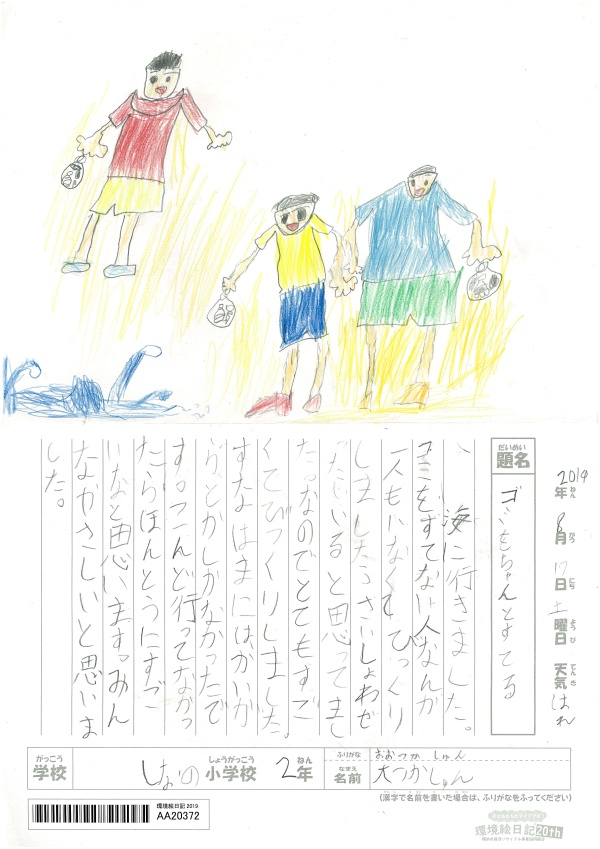 2019年ねん 8月がつ 17日にち 土曜日ようび 天気てんき はれ
だいめい
題名
ゴミをちゃんとすてる
海に行きました。
ゴミをすてない人なんか
一人もいなくてびっくり
しました。さいしょわぜ
ったいいると思ってまし
た。なのでとてもすご
くてびっくりしました。
すなはまにはかいが
らとかしかなかったで
す。こんど行ってなかっ
たらほんとうにすご
いなと思います。みん
なやさしいと思いま
した。
がっこう
学校
しなの
しょうがっこう
小学校
2
ねん
年
ふりがな
おおつか しゅん
なまえ
名前
大つかしゅん
(漢字で名前を書いた場合は、ふりがなをふってください)
環境絵日記 2019
AA20372
環境絵日記 20th